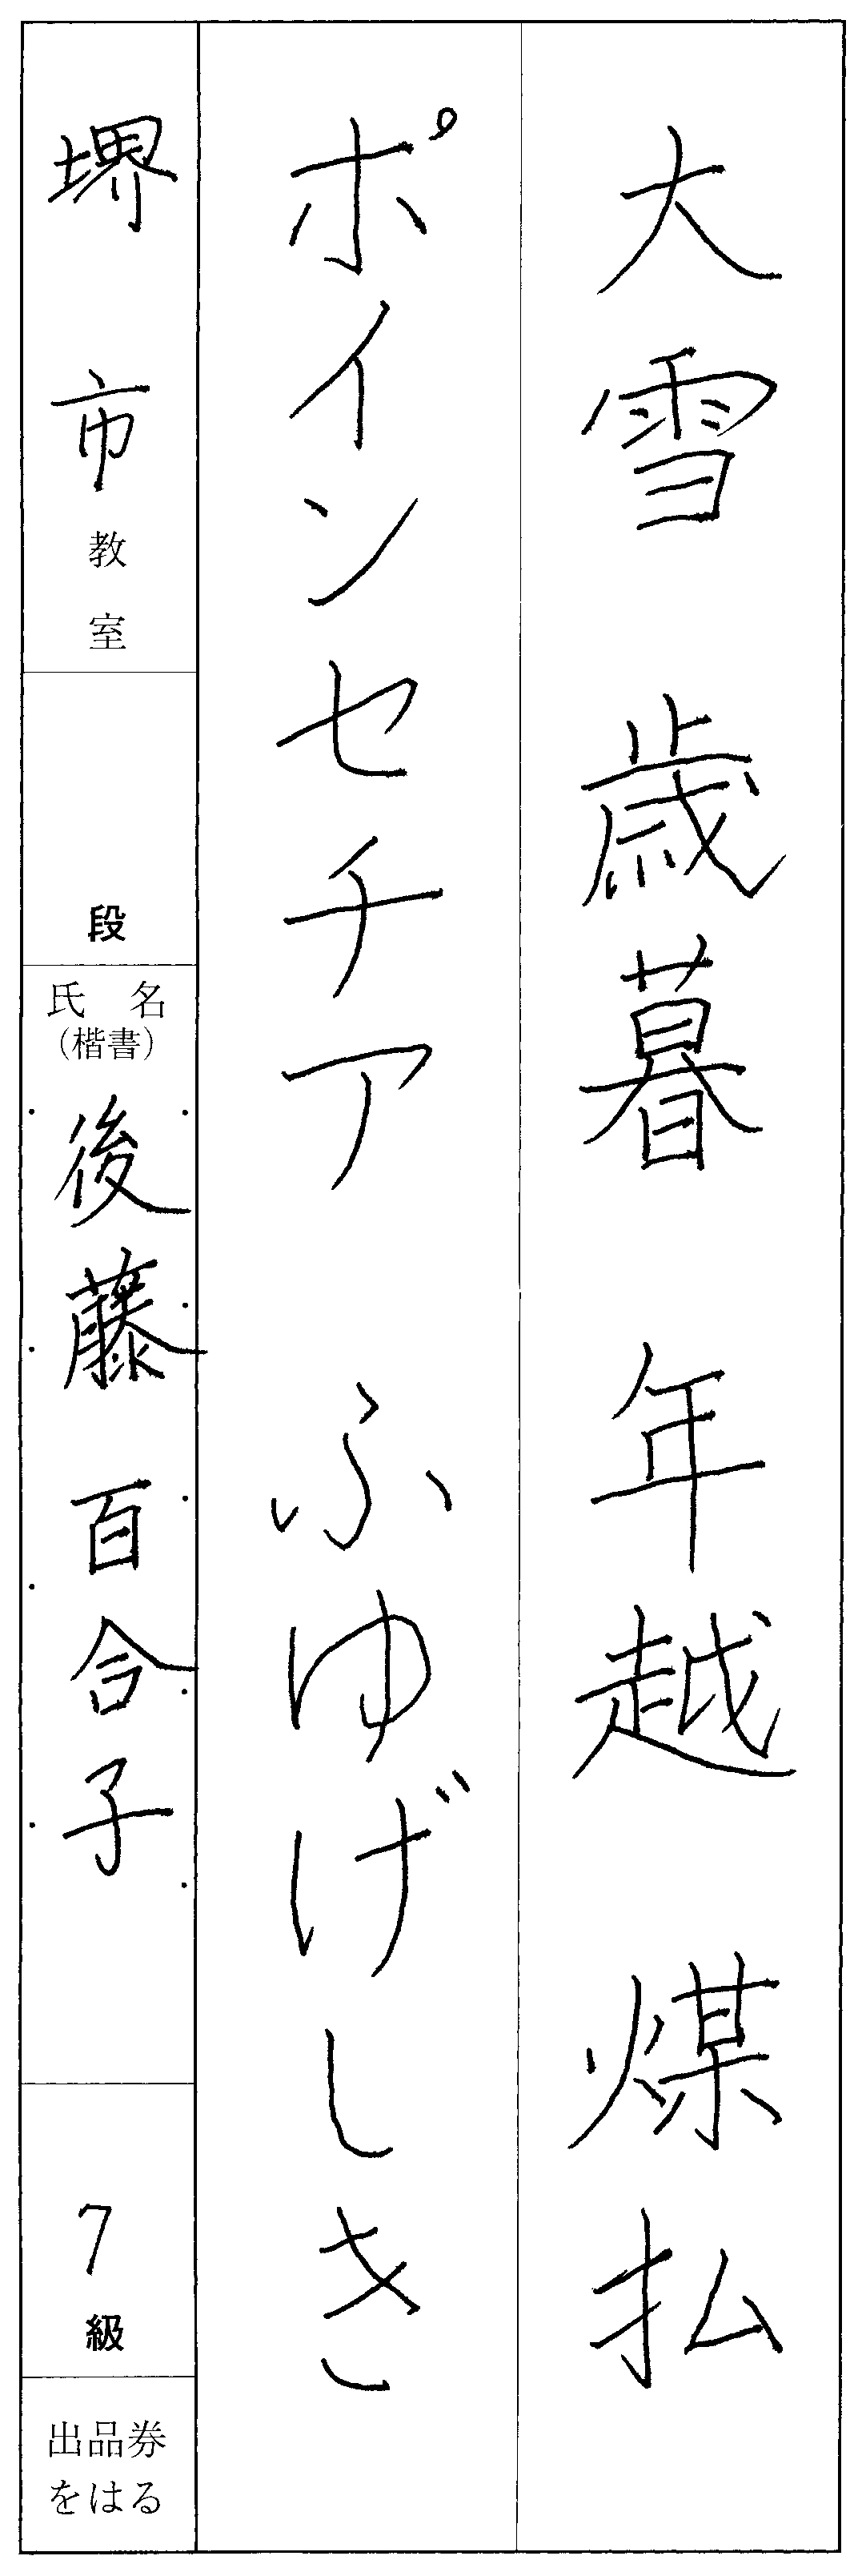 大雪 歳暮 年越 煤払
ポインセチア ふゆげしき
堺市教室
段
氏名
(楷書)
後藤百合子
7級
出品券
をはる